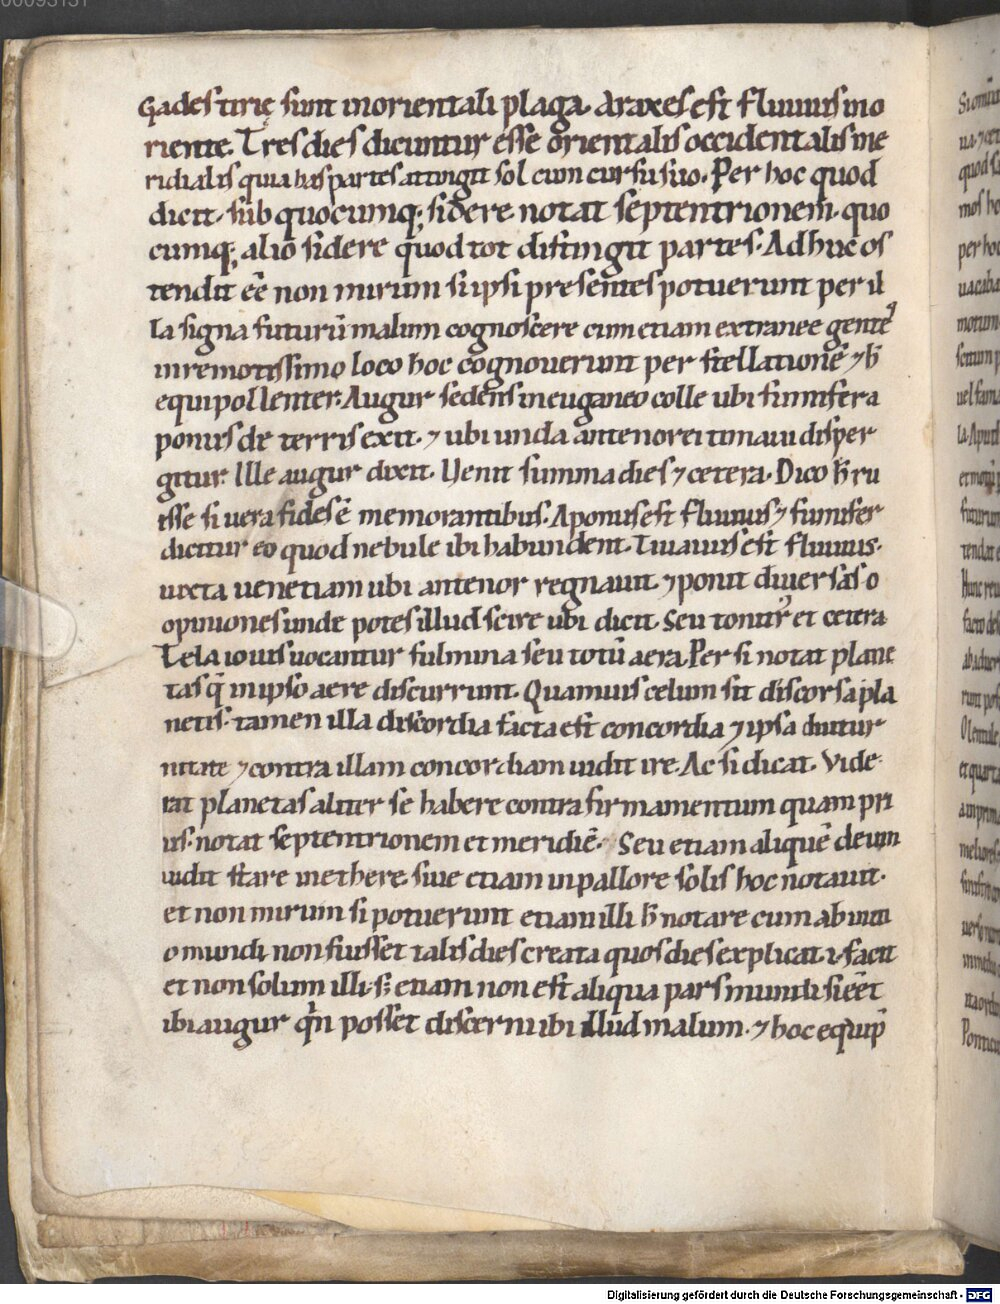 00093131
Gades tirię sunt in orientali plaga. Araxes est fluuius in o
riente. Tres dies dicuntur esse orientalis occidentalis me
ridialis quia has partes attingit sol cum cursu suo. Per hoc quod
dicit. sub quocumq; sidere. notat septentrionem. quo
cumq; alio sidere quod tot distingit partes. Adhuc os
tendit eē non mirum si ipsi presentes potuerunt per il
la signa futurū malum cognoscere cum etiam extranee gentes
in remotissimo loco hoc cognouerunt per stellationē ⁊ h̄
equipollenter. Augur sedens in euganeo colle ubi fumifera
ponus de terris exit. ⁊ ubi unda antenorei timaui disper
gitur. Ille augur dixit. Uenit summa dies ⁊ cetera. Dico h̄ fu
isse si uera fides ē memorantibus. Aponus est fluuius ⁊ fumifer
dicitur eo quod nebule ibi habundent. Timauus est fluuius.
iuxta uenetiam ubi antenor regnauit. ⁊ ponit diuersas o
piniones unde potes illud scire ubi dicit. Seu tonitr᷒ et cetera
Tela iouis uocantur fulmina seu totū aera. Per si notat plane
tas q̄ in ipso aere discurrunt. Quamuis celum sit discors a pla
netis. tamen illa discordia facta est concordia ⁊ ipsa diutur
nitate ⁊ contra illam concordiam uidit ire. Ac si dicat. Vide
rat planetas aliter se habere contra firmamentum quam pri
us. notat septentrionem et meridiē. Seu etiam aliquē deum
uidit stare in ethere. siue etiam in pallore solis hoc notauit.
et non mirum si potuerunt etiam illi h̄ notare cum ab initi
o mundi non fuisset talis dies creata quos dies explicat .i. facit
et non solum illi. s; etiam non est aliqua pars mundi si eēt
ibi augur qn̄ posset discerni ibi illud malum. ⁊ hoc equip̄
Digitalisierung gefördert durch die Deutsche Forschungsgemeinschaft - DFG